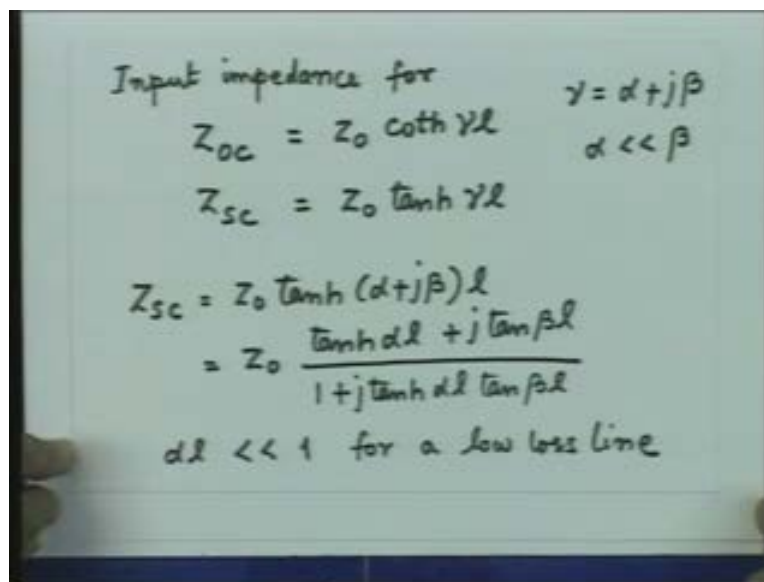 Input impedance for
γ = α + jβ
Z_oc = Z_0 coth γl
α << β
Z_sc = Z_0 tanh γl
Z_sc = Z_0 tanh (α+jβ) l
= Z_0 (tanh αl + j tan βl) / (1 + j tanh αl tan βl)
αl << 1 for a low loss line